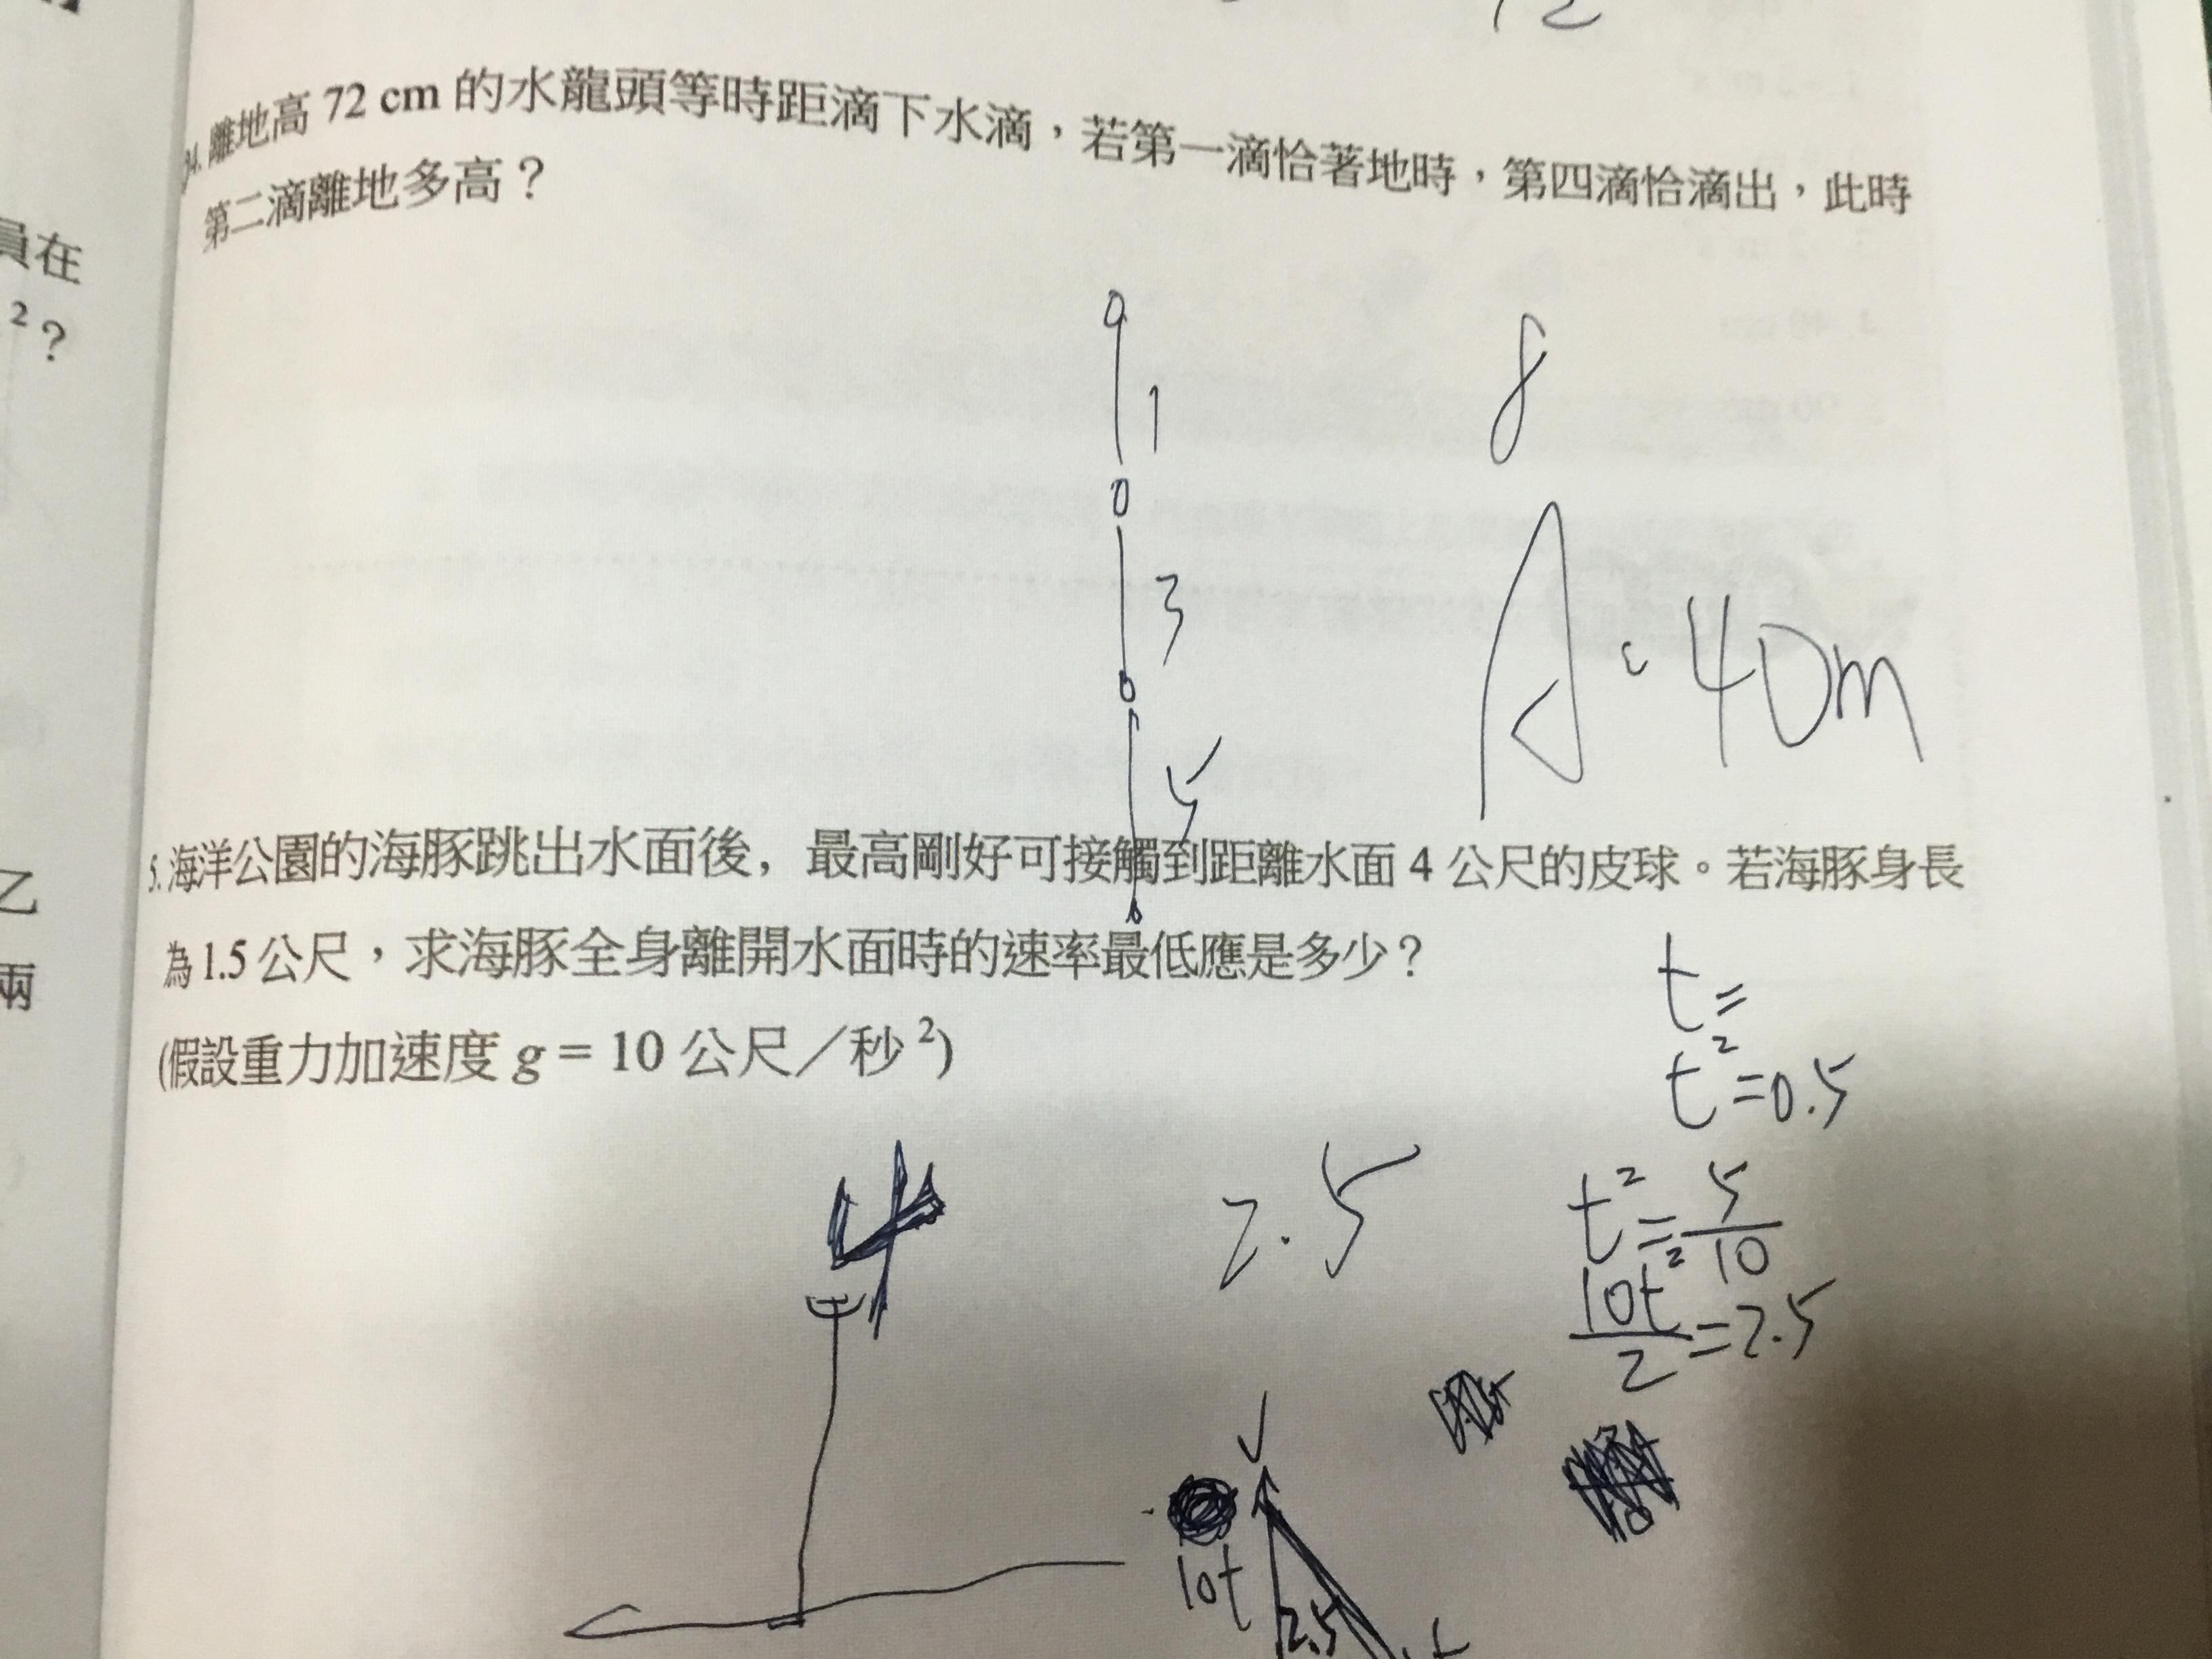 12
離地高 72 cm 的水龍頭等時距滴下水滴，若第一滴恰著地時，第四滴恰滴出，此時
第二滴離地多高？
員在
²？
1
8
3
A：40m
5
5. 海洋公園的海豚跳出水面後，最高剛好可接觸到距離水面 4 公尺的皮球。若海豚身長
為 1.5 公尺，求海豚全身離開水面時的速率最低應是多少？
(假設重力加速度 g = 10 公尺／秒²)
乙
兩
t=
t²=0.5
4
2.5
t²=5/10
10t²/2=2.5
V
10t
2.5
t